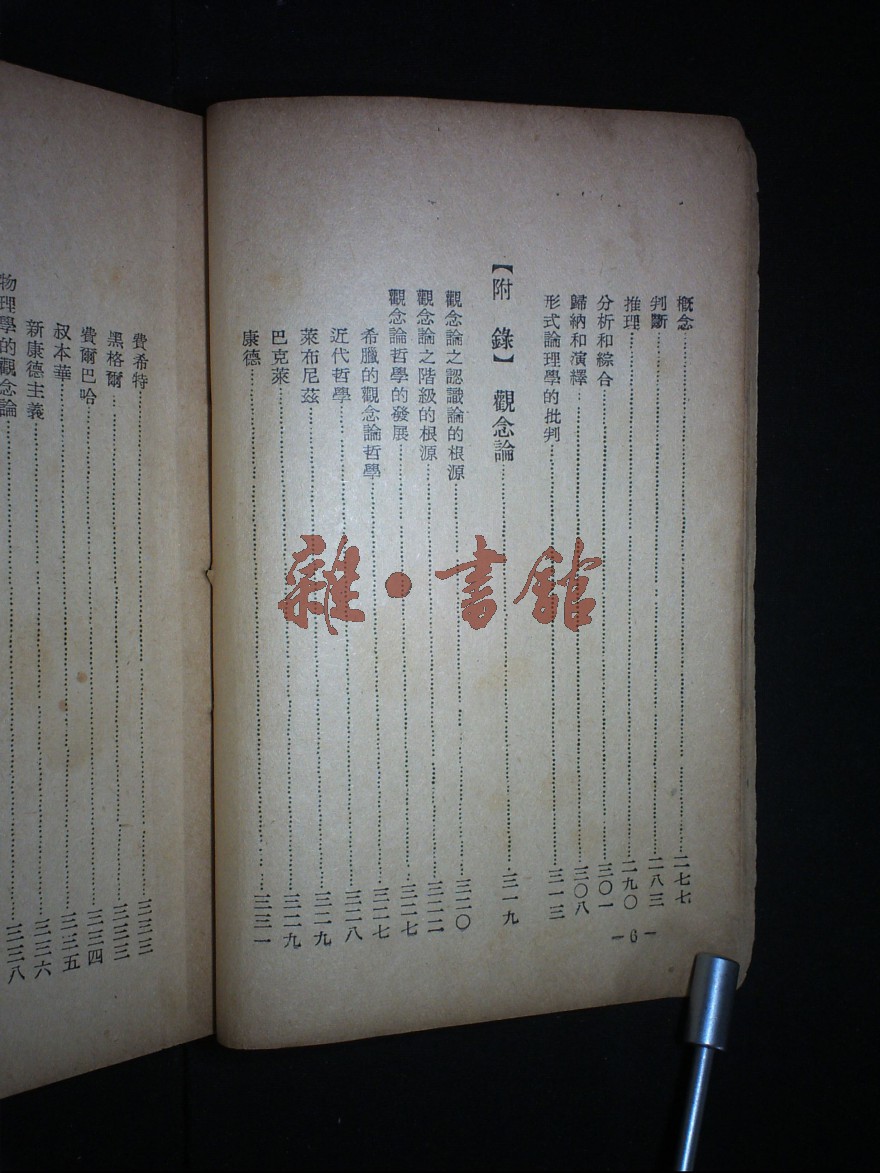 概念……二七七
判斷……二八三
推理……二九〇
分析和綜合……三〇一
歸納和演繹……三〇八
形式論理學的批判……三一三
【附錄】觀念論……三一九
觀念論之認識論的根源……三二〇
觀念論之階級的根源……三二二
觀念論哲學的發展……三二七
希臘的觀念論哲學……三二七
近代哲學……三二八
萊布尼茲……三二九
巴克萊……三二九
康德……三三一
—6—
費希特……三三三
黑格爾……三三三
費爾巴哈……三三四
叔本華……三三五
新康德主義……三三六
物理學的觀念論……三三八
雜·書館